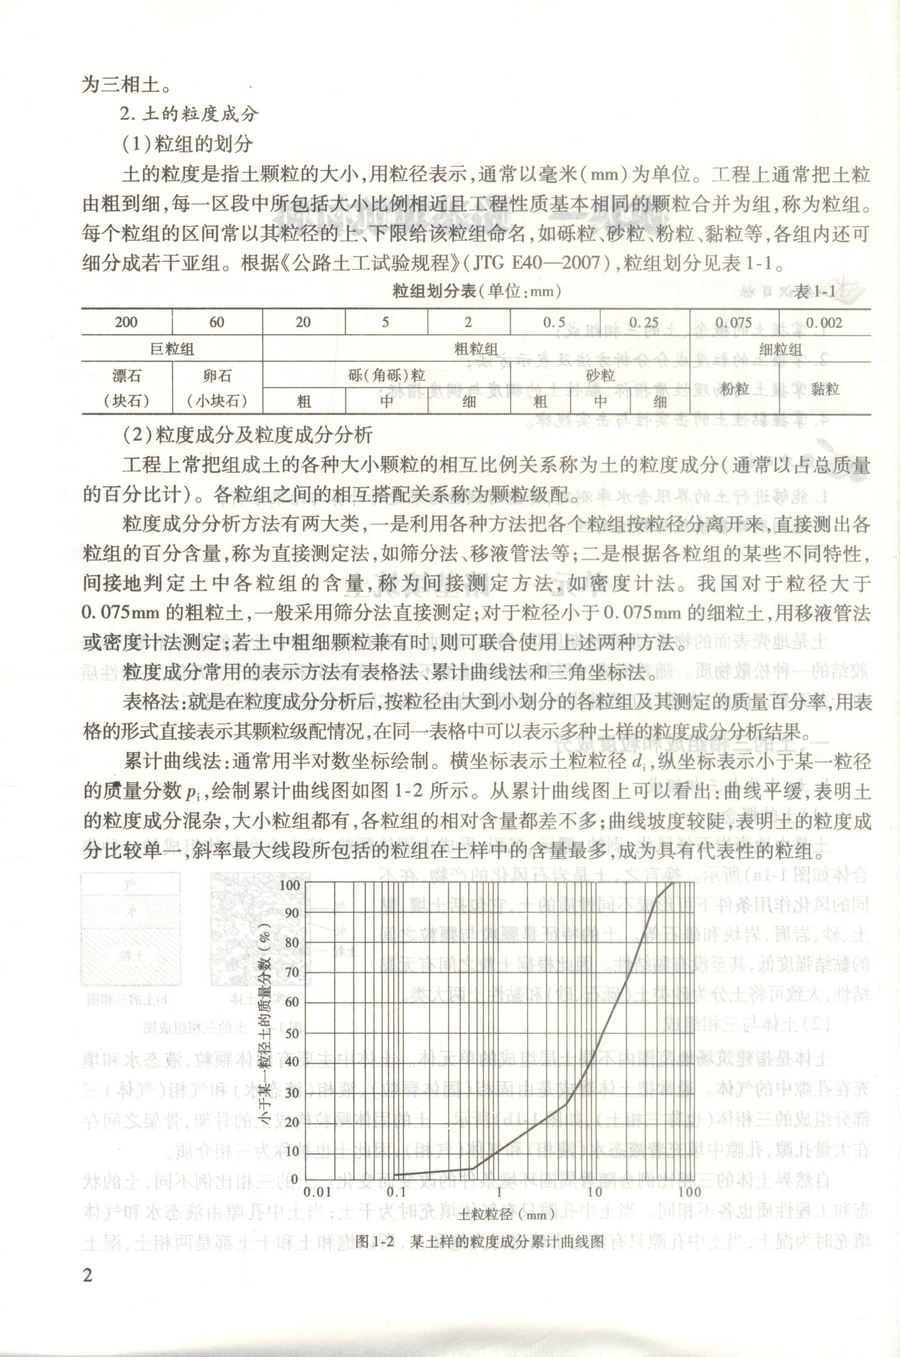 为三相土。
2. 土的粒度成分
(1)粒组的划分
土的粒度是指土颗粒的大小,用粒径表示,通常以毫米(mm)为单位。工程上通常把土粒
由粗到细,每一区段中所包括大小比例相近且工程性质基本相同的颗粒合并为组,称为粒组。
每个粒组的区间常以其粒径的上、下限给该粒组命名,如砾粒、砂粒、粉粒、黏粒等,各组内还可
细分成若干亚组。根据《公路土工试验规程》(JTG E40—2007),粒组划分见表1-1。
粒组划分表(单位:mm) 表1-1
200 60 20 5 2 0.5 0.25 0.075 0.002
巨粒组 粗粒组 细粒组
漂石 卵石 砾(角砾)粒 砂粒 粉粒 黏粒
(块石) (小块石) 粗 中 细 粗 中 细
(2)粒度成分及粒度成分分析
工程上常把组成土的各种大小颗粒的相互比例关系称为土的粒度成分(通常以占总质量
的百分比计)。各粒组之间的相互搭配关系称为颗粒级配。
粒度成分分析方法有两大类,一是利用各种方法把各个粒组按粒径分离开来,直接测出各
粒组的百分含量,称为直接测定法,如筛分法、移液管法等;二是根据各粒组的某些不同特性,
间接地判定土中各粒组的含量,称为间接测定方法,如密度计法。我国对于粒径大于
0.075mm 的粗粒土,一般采用筛分法直接测定;对于粒径小于0.075mm 的细粒土,用移液管法
或密度计法测定;若土中粗细颗粒兼有时,则可联合使用上述两种方法。
粒度成分常用的表示方法有表格法、累计曲线法和三角坐标法。
表格法:就是在粒度成分分析后,按粒径由大到小划分的各粒组及其测定的质量百分率,用表
格的形式直接表示其颗粒级配情况,在同一表格中可以表示多种土样的粒度成分分析结果。
累计曲线法:通常用半对数坐标绘制。横坐标表示土粒粒径 di,纵坐标表示小于某一粒径
的质量分数 pi,绘制累计曲线图如图 1-2 所示。从累计曲线图上可以看出:曲线平缓,表明土
的粒度成分混杂,大小粒组都有,各粒组的相对含量都差不多;曲线坡度较陡,表明土的粒度成
分比较单一,斜率最大线段所包括的粒组在土样中的含量最多,成为具有代表性的粒组。
小于某一粒径土的质量分数(%)
100
90
80
70
60
50
40
30
20
10
0
0.01 0.1 1 10 100
土粒粒径(mm)
图1-2 某土样的粒度成分累计曲线图
2